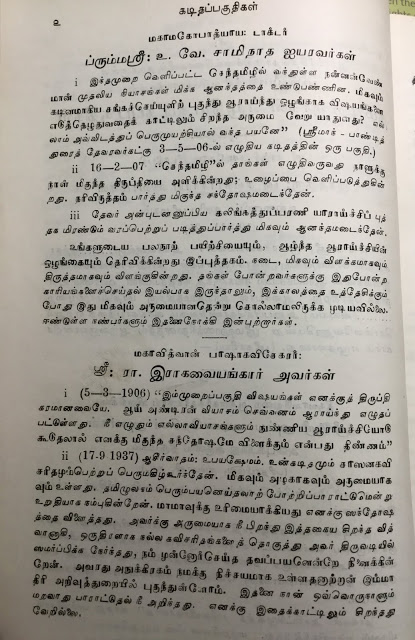 கடிதப்பகுதிகள்
௨
மகாமகோபாத்யாய: டாக்டர்
ப்ரும்மஸ்ரீ: உ. வே. சாமிநாத ஐயரவர்கள்
i இந்தமுறை வெளிப்பட்ட செந்தமிழில் வந்துள்ள நன்னன்வேண்
மான் முதலிய வியாசங்கள் மிக்க ஆனந்தத்தை உண்டுபண்ணின. மிகவும்
கடினமாகிய சங்கச்செய்யுளிற் புகுந்து ஆராய்ந்து ஒழுங்காக விஷயங்களை
எடுத்தெழுதுவதைக் காட்டிலும் சிறந்த அருமை வேறு யாதுளது? எல்
லாம் அவ்விடத்துப் பெருமுயற்சியால் வந்த பயனே" (ஸ்ரீமாந் - பாண்டித்
துரைத் தேவரவர்கட்கு 3—5—06-ல் எழுதிய கடிதத்தின் ஒரு பகுதி.)
ii 16—2—07 "செந்தமிழில்" தாங்கள் எழுதிவருவது நாளுக்கு
நாள் மிகுந்த திருப்தியை அளிக்கின்றது; உழைப்பை வெளிப்படுத்துகின்
றது. நரிவிருத்தம் பார்த்து மிகுந்த சந்தோஷமடைந்தேன்.
iii தேவர் அன்புடனனுப்பிய கலிங்கத்துப்பரணி யாராய்ச்சிப் புத்
தக மிரண்டும் வரப்பெற்றுப் படித்துப்பார்த்து மிகவும் ஆனந்தமடைந்தேன்.
உங்களுடைய பலநூற் பயிற்சியையும், ஆழ்ந்த ஆராய்ச்சியின்
ஒழுங்கையும் தெரிவிக்கின்றது இப்புத்தகம். நடை, மிகவும் விளக்கமாகவும்
திருத்தமாகவும் விளங்குகின்றது. தங்கள் போன்றவர்களுக்கு இதுபோன்ற
காரியங்களைச்செய்தல் இயல்பாக இருந்தாலும், இக்காலத்தை உத்தேசிக்கும்
போது இது மிகவும் அருமையானதென்று சொல்லாமலிருக்க முடியவில்லை.
ஈண்டுள்ள நண்பர்களும் இதனைநோக்கி இன்புற்றார்கள்.
மகாவித்வான் பாஷாகவிசேகரர்:
ஸ்ரீ. ரா. இராகவையங்கார் அவர்கள்
i (5—3—1906) "இம்முறைப்பகுதி விஷயங்கள் எனக்குத் திருப்தி
கரமானவையே. ஆய் அண்டிரன் வியாசம் செவ்வனம் ஆராய்ந்து எழுதப்
பட்டுள்ளது. நீ எழுதும் எல்லாவியாசங்களும் நுண்ணிய ஆராய்ச்சியோடு
கூடுதலால் எனக்கு மிகுந்த சந்தோஷமே விளைக்கும் என்பது திண்ணம்"
ii (17-9 1937) ஆசிர்வாதம்: உபயக்ஷேமம். உன்கடிதமும் சாஸனகவி
சரிதமும்பெற்றுப் பெருமகிழ்கூர்ந்தேன். மிகவும் அழகாகவும் அருமையாக
வும் உள்ளது. தமிழுலகம் பெரும்பயனெய்தலாற் போற்றிப்பாராட்டுமென்று
உறுதியாக நம்புகின்றேன். மாமாவுக்கு உரிமையாக்கியது எனக்கு ஸந்தோஷ
த்தை விளைத்தது. அவர்க்கு அருமையாக நீ பிறந்து இத்தகைய சிறந்த வித்
வானாகி, ஒருதிரளாக நல்ல கவிசரிதங்களைத் தொகுத்து அவர் திருவடியில்
ஸமர்ப்பிக்க நேர்ந்தது; நம் முன்னோர்செய்த தவப்பயனென்றே நினைக்கின்
றேன். அவரது அநுக்கிரகம் நமக்கு நிச்சயமாக உள்ளதனாற்றான் இம்மா
திரி அறிவுத்துறையில் புகுந்துள்ளோம். இதனை நான் ஒவ்வொருநாளும்
மறவாது பாராட்டுதல் நீ அறிந்தது. எனக்கு இதைக்காட்டிலும் சிறந்தது
வேறில்லை.